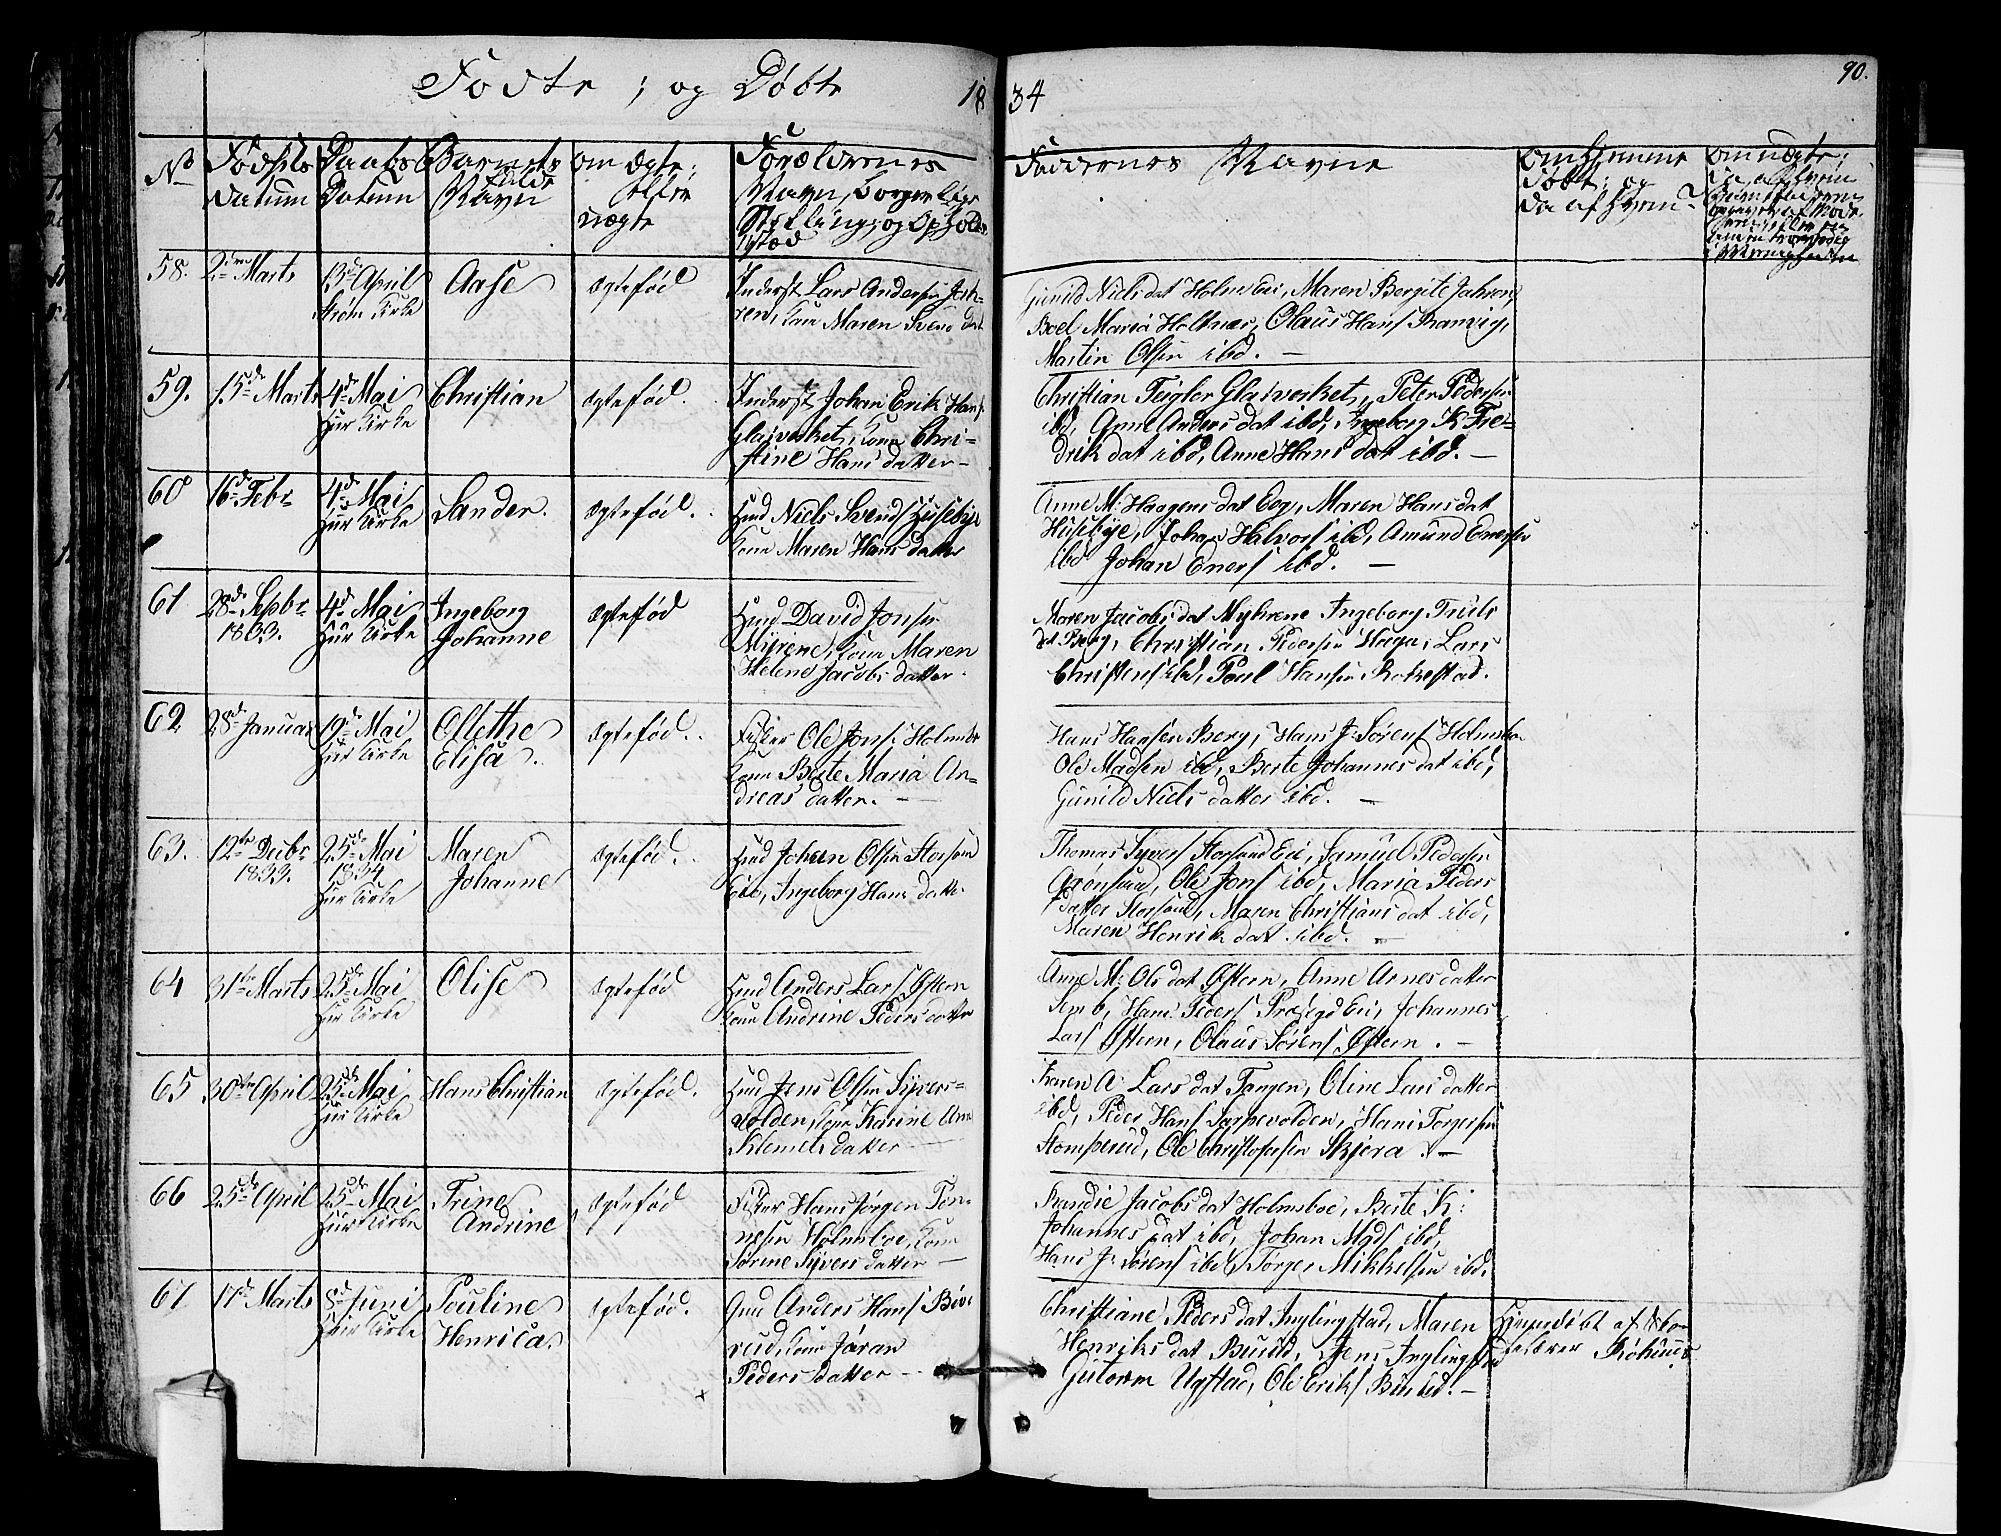 Fødte; og Døbte 1834
90.
No
Fødsels Datum
Daabs Datum
Barnets fulde Navn
om Ægte; eller uægte
Forældrenes Navn, Borgerlige Stilling; og Opholds sted
Faddernes Navne
om hjemme døbt; og da af hvem?
58. 2den Marts
13de April
Strøm Kirke
Aase
Ægtefød
Inderst Lars Andersen Jah-
ren, Kone Maren Svends dat
Gunild Niels dat Holm Eie, Maren Bergite Jahren,
Boel Maria Holtnæs, Olaus Hans Ramvig,
Martin Olsen ibd. —
59. 15de Marts
4de Mai
Hur Kirke
Christian
Ægtefød.
Inderst Johan Erik Hans
Glasverket, Kone Chri-
stine Hans datter —
Christian Teigler Glasverket, Peter Pedersen
ibd, Anne Anders dat ibd, Ingeborg K Fre-
drik dat ibd, Anne Hans dat ibd. —
60 16de Febr
4de Mai
Hur Kirke
Sander.
Ægtefød.
Hmd Niels Svends Husebye
Kone Maren Hans datter
Anne M: Haagens dat Eeg, Maren Hans dat
Husebye, Johan Halvors ibd, Amund Eversen
ibd Johan Evers ibd. —
61 28de Septbr
1833.
4de Mai
Hur Kirke
Ingeborg
Johanne
Ægtefød
Hmd David Jonsen
Myrene, Kone Maren
Helene Jacobs datter.
Maren Jacobs dat Myhrene Ingeborg Truls
dat Berg, Christian Pedersen Haga, Lars
Christens ibd, Poul Hansen Rokestad.
62 28de Januar
19de Mai
Hur Kirke
Ollethe
Elisa.
Ægtefød.
Fisker Ole Jons: Holmsbo
Kone Berte Maria An-
dreas datter. —
Hans Hansen Berg, Hans J: Sørens Holmsbo
Ole Madsen ibd, Berte Johannes dat ibd,
Gunild Niels datter ibd. —
63. 12te Decbr
1833.
25de Mai
1834
Hur Kirke
Maren
Johanne
Ægtefød.
Hmd Johan Olsen Storsand
Eie, Ingeborg Hans datter.
Thomas Syvers Storsand Eie, Samuel Pedersen
Grønsand, Ole Jons ibd, Maria Peders
datter Storsand, Maren Christians dat ibd,
Maren Henrik dat ibd. —
64 31te Marts
25de Mai
Hur Kirke
Olise
Ægtefød
Hmd Anders Lars Østern
Kone Andrine Peders datter
Anne M: Ols dat Østern, Anne Arnes datter
Semb, Hans Peders Eie, Johannes
Lars Østern, Olaus Sørens Østern. —
65 30te April
25de Mai
Hur Kirke
Hans Christian
Ægtefød.
Hmd Jens Olsen Syver-
volden, Kone Karine Ane
Klemets datter —
Karen A: Lars dat Tangen, Oline Lars datter
ibd, Peder Hans Sarpevolden, Hans Torgersen
Stomperud, Ole Christofersen Skjøra. —
66 25de April
25de Mai
Hur Kirke
Trine
Andrine
Ægtefød
Fisker Hans Jørgen Tøn-
nesen Holmsboe, Kone
Sørine Syvers datter —
Randie Jacobs dat Holmsboe, Berte K:
Johannes dat ibd, Johan Mgds ibd,
Hans J: Sørens ibd, Torger Mikkelsen ibd.
67 17de Marts
8de Juni
Hur Kirke
Pouline
Henrica
Ægtefød.
Gmd Anders Hans
rud, Kone Jøran
Peders datter —
Christiane Peders dat Inglingstad, Maren
Henriks dat, Jens Inglingstad
Gutorm Ugstad, Ole Eriks. —
Hjemedøbt af Skole
lærer